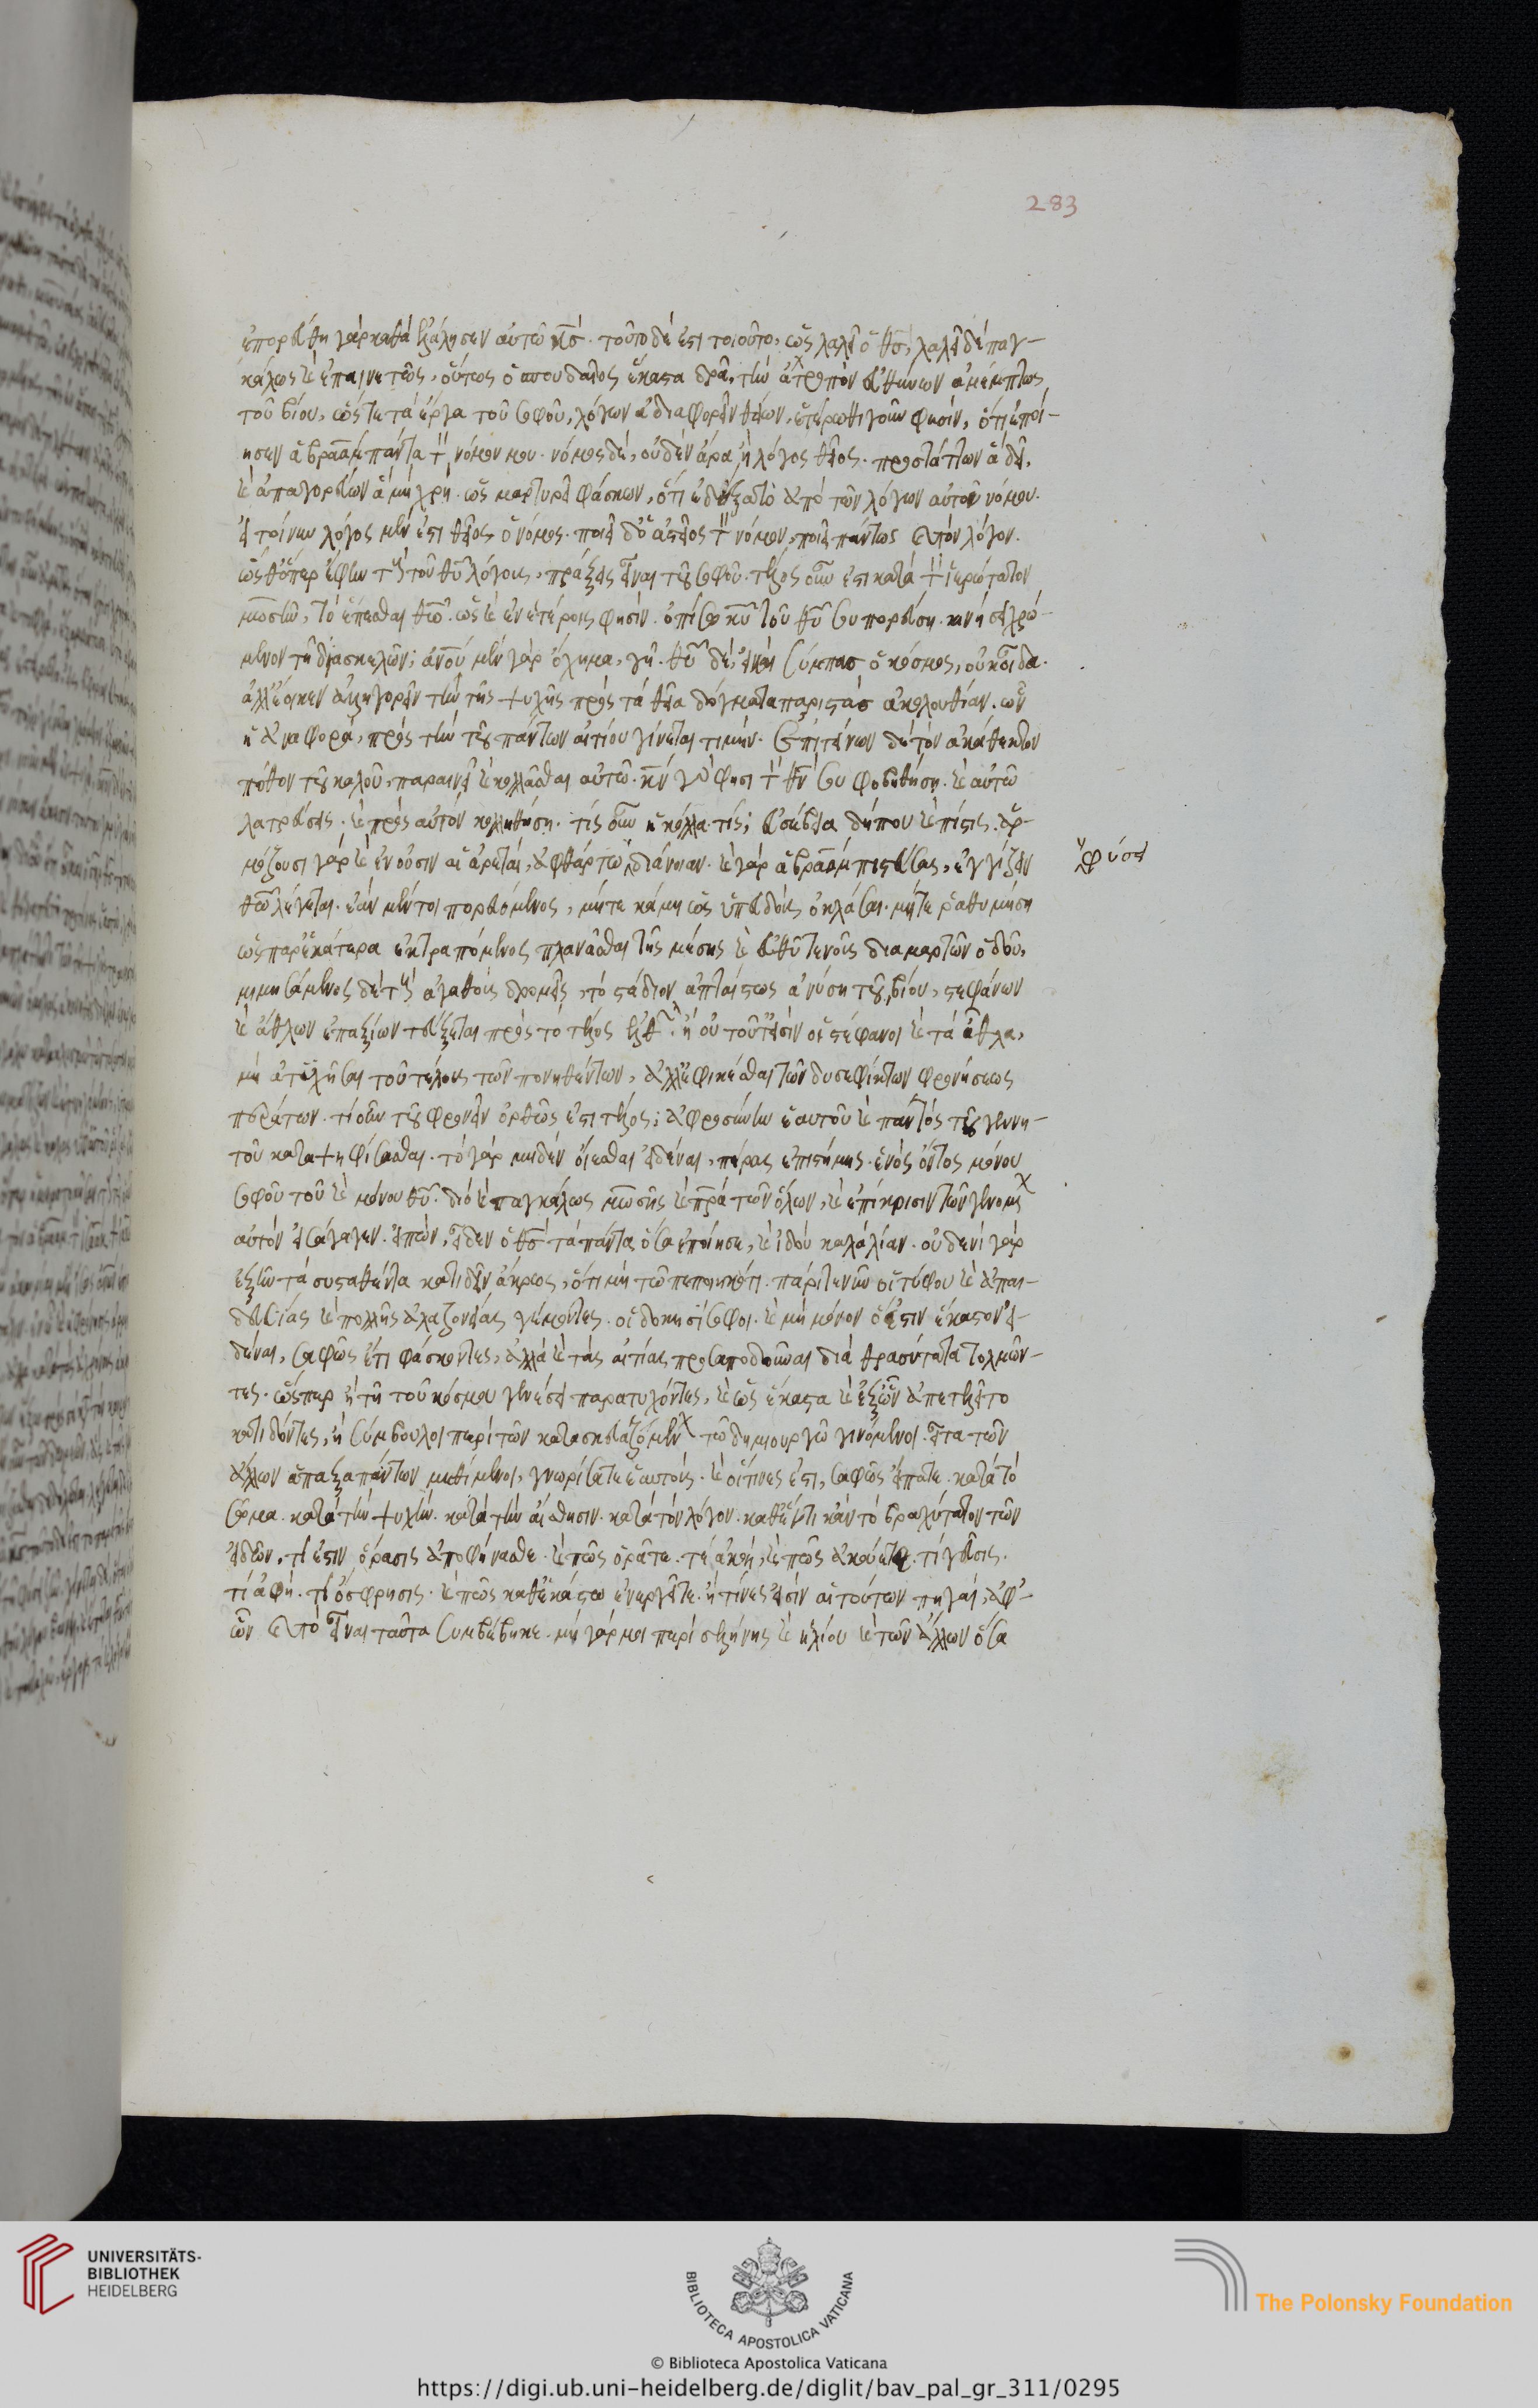 ἐπορεύθη γὰρ καθὰ ἐλάλησεν αὐτῶ κς. τοῦτο δέ ἐστι τοιοῦτο, ὡς λαλεῖ ὁ θς, λαλεῖ δὲ παγ-
κάλως καὶ ἐπαινετῶς, οὕτως ὁ σπουδαῖος ἕκαστα δρᾶ, τὴν ἀτραπὸν εὐθύνων ἀμέμπτως
τοῦ βίου, ὥστε τὰ ἔργα τοῦ σοφοῦ, λόγων ἀδιαφορεῖν θείων, ἑτέρωθι γοῦν φησίν, ὅτι ἐποί-
ησεν ἀβραὰμ πάντα τὸν νόμον μου. νόμος δὲ, οὐδὲν ἄρα ἢ λόγος θεῖος. προστάττων ἃ δεῖ,
καὶ ἀπαγορεύων ἃ μὴ χρή. ὡς μαρτυρεῖ φάσκων, ὅτι ἐδέξατο ἀπὸ τῶν λόγων αὐτοῦ νόμου.
εἰ τοίνυν λόγος μέν ἐστι θεῖος ὁ νόμος. ποιεῖ δ' ὁ ἀστεῖος τὸν νόμον, ποιεῖ πάντως καὶ τὸν λόγον.
ὥσθ' ὅπερ ἔφην τοὺς τοῦ θυ λόγους, πράξεις εἶναι τοῦ σοφοῦ. τέλος οὖν ἐστι κατὰ τὸν ἱερώτατον
μωσῆν, τὸ ἕπεσθαι θῶ. ὡς καὶ ἐν ἑτέροις φησίν. ὀπίσω κυ τοῦ θυ σου πορεύση. κινήσει χρώ-
μενον τῆ διὰ σκελῶν; ἀνου μὲν γὰρ ὄχημα, γῆ. θυ δὲ, εἰ καὶ σύμπας ὁ κόσμος, οὐκ οἶδα.
ἀλλ' ἔοικεν ἀλληγορεῖν τὴν τῆς ψυχῆς πρὸς τὰ θεῖα δόγματα παριστὰς ἀκολουθίαν. ὧν
ἡ ἀναφορὰ, πρὸς τὴν τοῦ πάντων αἰτίου γίνεται τιμήν. ἐπιτείνων δὲ τὸν ἀκάθεκτον
πόθον τοῦ καλοῦ, παραινεῖ καὶ κολλᾶσθαι αὐτῶ. κν γάρ φησι τὸν θν σου φοβηθήση. καὶ αὐτῶ
λατρεύσεις. καὶ πρὸς αὐτὸν κολληθήση. τίς οὖν ἡ κόλλα τίς; εὐσέβεια δήπου καὶ πίστις. ἁρ-
μόζουσι γὰρ καὶ ἑνοῦσιν αἱ ἀρεταὶ, ἀφθάρτω διάνοιαν. καὶ γὰρ ἀβραὰμ πιστεύσας, ἐγγίζειν
φύσει
θῶ λέγεται. ἐὰν μέντοι πορευόμενος, μήτε κάμη ὡς ὑπενδοὺς ὀκλάσαι. μήτε ῥαθυμήση
ὡς παρ' ἑκάτερα ἐκτραπόμενος πλανᾶσθαι τῆς μέσης καὶ εὐθυτενοῦς διαμαρτὼν ὁδοῦ,
μιμησάμενος δὲ τοὺς ἀγαθοὺς δρομεῖς, τὸ στάδιον ἀπταίστως ἀνύση τοῦ βίου, στεφάνων
καὶ ἄθλων ἐπαξίων τεύξεται πρὸς τὸ τέλος ἐλθών. ἢ οὐ τοῦτ' εἰσὶν οἱ στέφανοι καὶ τὰ ἆθλα,
μὴ ἀτυχῆσαι τοῦ τέλους τῶν πονηθέντων, ἀλλ' ἐφικέσθαι τῶν δυσεφίκτων φρονήσεως
περάτων. τί οὖν τοῦ φρονεῖν ὀρθῶς ἐστι τέλος; ἀφροσύνην ἑαυτοῦ καὶ παντὸς τοῦ γεννη-
τοῦ καταψηφίσασθαι. τὸ γὰρ μηδὲν οἴεσθαι εἰδέναι, πέρας ἐπιστήμης. ἑνὸς ὄντος μόνου
σοφοῦ τοῦ καὶ μόνου θυ. διὸ καὶ παγκάλως μωσῆς καὶ πρα τῶν ὅλων, καὶ ἐπίκρισιν τῶν γενομένων
αὐτὸν εἰσάγαγεν. εἰπὼν, εἶδεν ὁ θς τὰ πάντα ὅσα ἐποίησε, καὶ ἰδοὺ καλὰ λίαν. οὐδενὶ γὰρ
ἐξῆν τὰ συσταθέντα κατιδεῖν ἄκρως, ὅτι μὴ τῶ πεποιηκότι. πάριτε νῦν οἱ τύφου καὶ ἀπαι-
δευσίας καὶ πολλῆς ἀλαζονείας γέμοντες. οἱ δοκησίσοφοι. καὶ μὴ μόνον ὅ ἐστιν ἕκαστον εἰ-
δέναι, σαφῶς ἔτι φάσκοντες, ἀλλὰ καὶ τὰς αἰτίας προσαποδοῦναι διὰ θρασύτητα τολμῶν-
τες. ὥσπερ ἢ τῆ τοῦ κόσμου γενέσει παρατυχόντες, καὶ ὡς ἕκαστα καὶ ἐξ ὧν ἀπετελεῖτο
κατιδόντες, ἢ σύμβουλοι περὶ τῶν κατασκευαζομένων τῶ δημιουργῶ γινόμενοι. εἶτα τῶν
ἄλλων ἅπαξ ἁπάντων μεθέμενοι, γνωρίσατε ἑαυτούς. καὶ οἵτινές ἐστε, σαφῶς εἴπατε. κατὰ τὸ
σῶμα. κατὰ τὴν ψυχήν. κατὰ τὴν αἴσθησιν. κατὰ τὸν λόγον. καθ' ἕν τι κἂν τὸ βραχύτατον τῶν
εἰδῶν, τί ἐστιν ὅρασις ἀποφήνασθε. καὶ πῶς ὁρᾶτε. τί ἀκοή, καὶ πῶς ἀκούετε. τί γεῦσις.
τί ἁφή. τί ὄσφρησις. καὶ πῶς καθ' ἑκάστω ἐνεργεῖτε. ἢ τίνες εἰσὶν αἱ τούτων πηγαὶ, ἀφ'
ὧν καὶ τὸ εἶναι ταῦτα συμβέβηκε. μὴ γάρ μοι περὶ σελήνης καὶ ἡλίου καὶ τῶν ἄλλων ὅσα
283
UNIVERSITÄTS-
BIBLIOTHEK
HEIDELBERG
BIBLIOTECA APOSTOLICA VATICANA
The Polonsky Foundation
© Biblioteca Apostolica Vaticana
https://digi.ub.uni-heidelberg.de/diglit/bav_pal_gr_311/0295